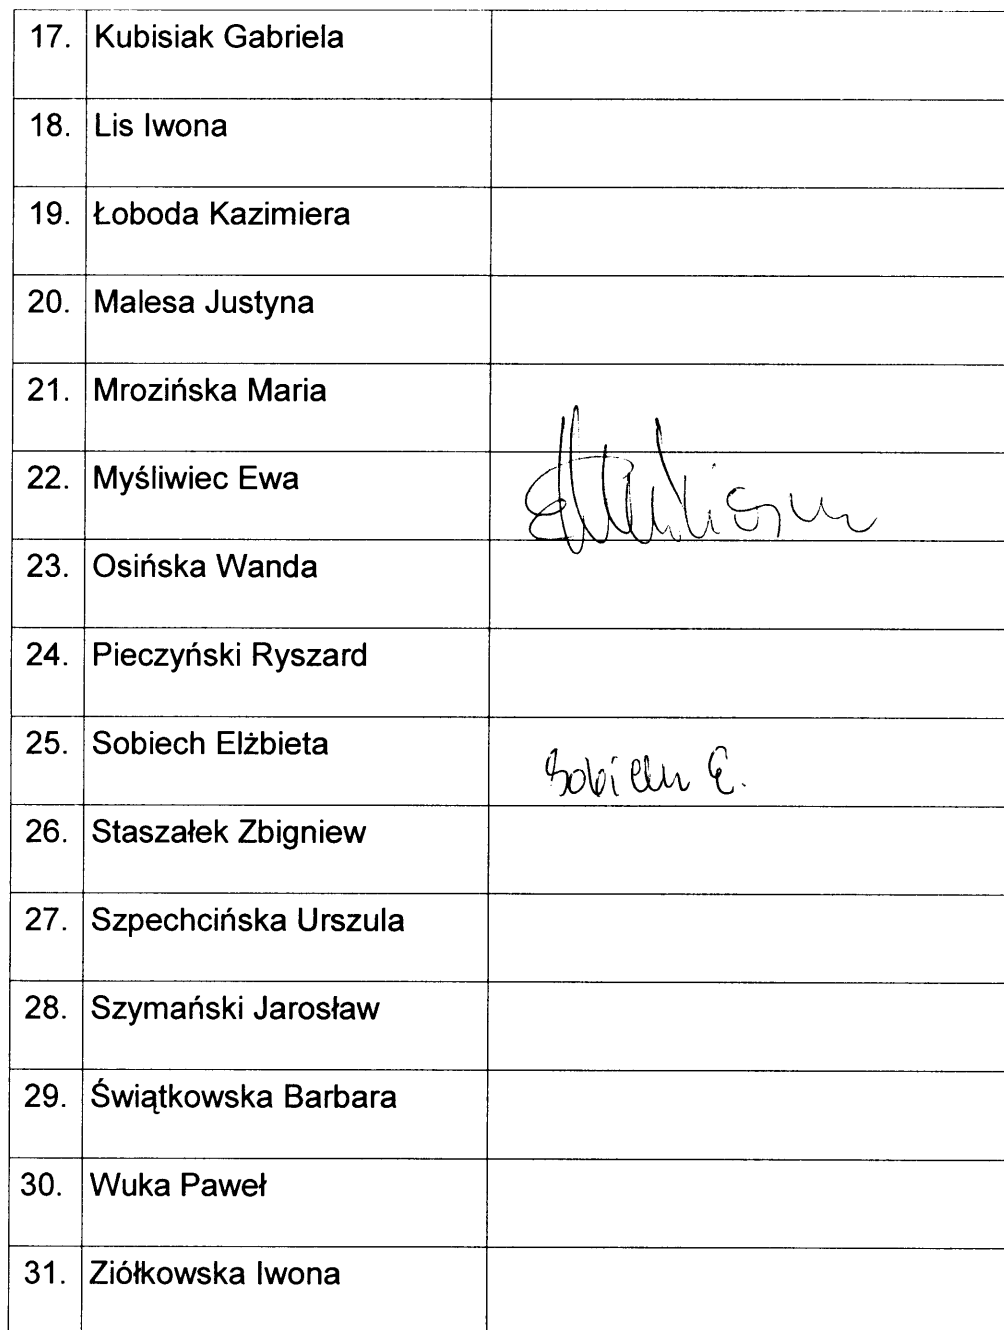 17. Kubisiak Gabriela
18. Lis Iwona
19. Łoboda Kazimiera
20. Malesa Justyna
21. Mrozińska Maria
22. Myśliwiec Ewa
23. Osińska Wanda
24. Pieczyński Ryszard
25. Sobiech Elżbieta Sobiech E.
26. Staszałek Zbigniew
27. Szpechcińska Urszula
28. Szymański Jarosław
29. Świątkowska Barbara
30. Wuka Paweł
31. Ziółkowska Iwona